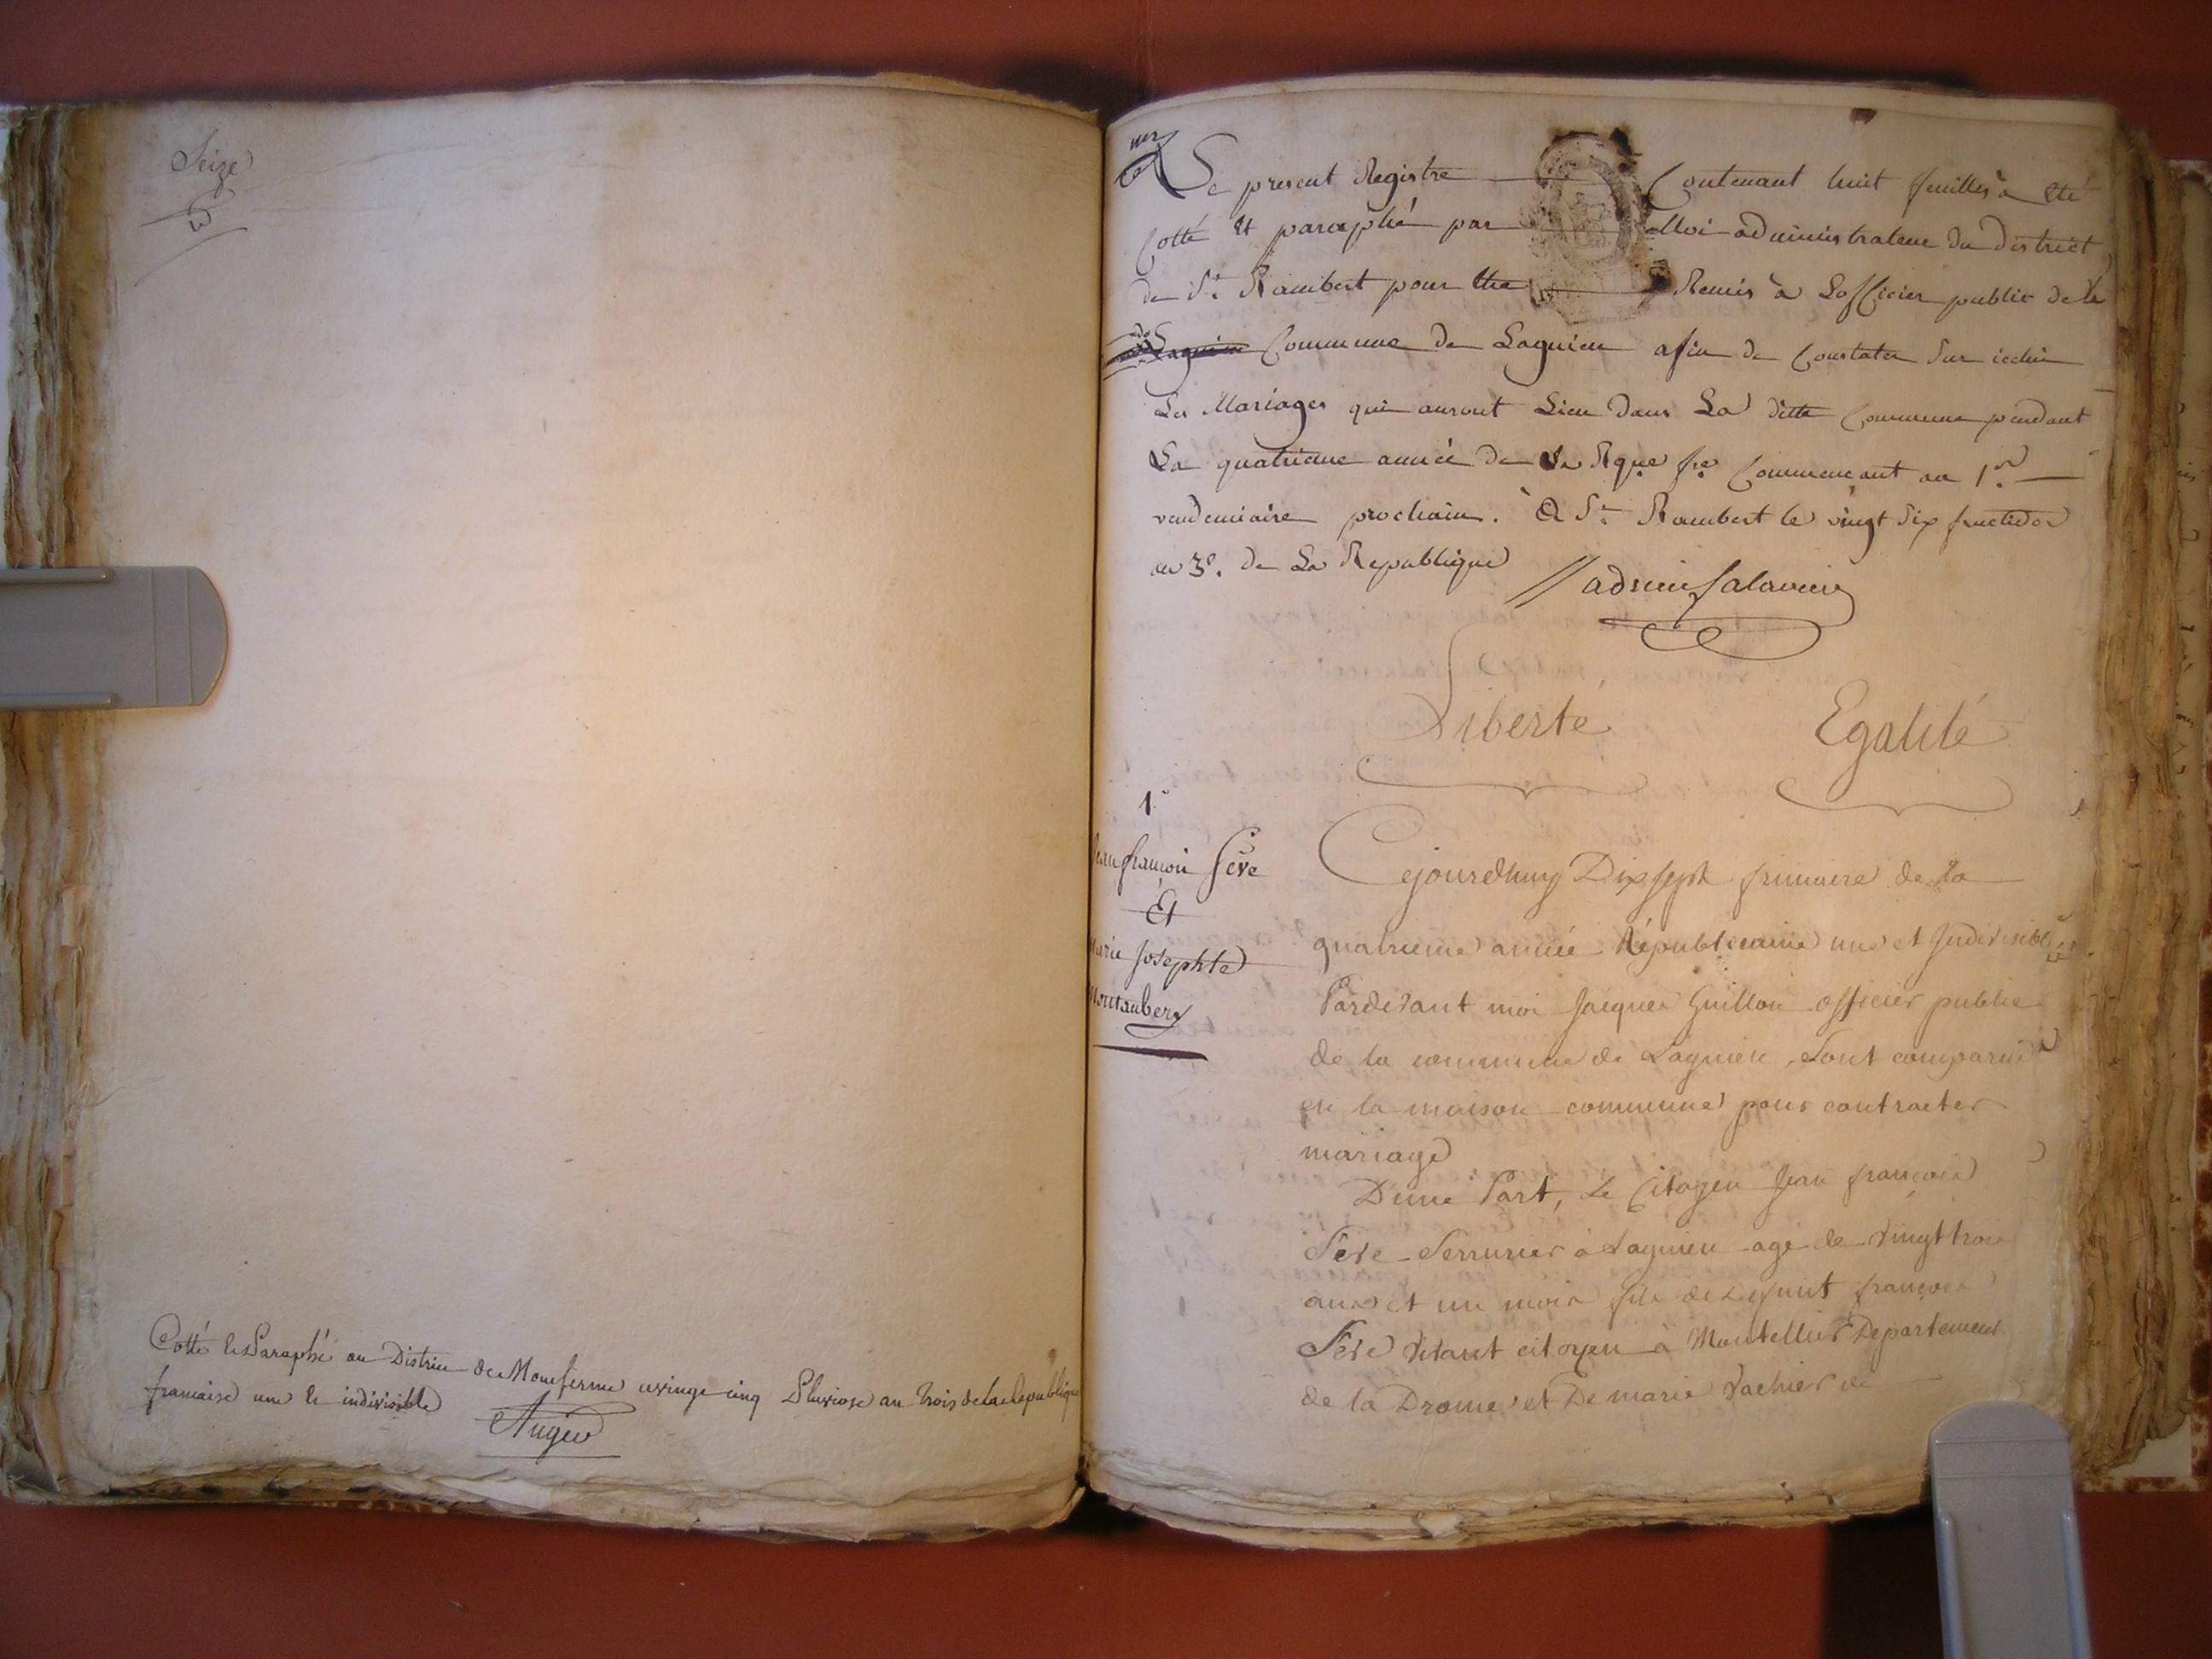 Seize
Cotté et Paraphé au District de Montferme ce vingt cinq Pluviose an trois de la Republique
francaise une et indivisible
Auger
1er
Le present Registre Contenant huit feuilles à été
Cotté et paraphé par Moi administrateur du District
de St. Rambert pour être Remis à Lofficier public de la
Commune de Lagnieu afin de Constater sur icelui
Les Mariages qui auront Lieu dans La ditte Commune pendant
La quatrieme année de la Rque fse Commencant au 1er
vendemiaire prochain. à St. Rambert le vingt six fructidor
an 3e. de La Republique
Liberté Egalité
1
Jean francois Séve
Et
Marie Josephte
Montauber
Cejourdhuy Dix sept frimaire de la
quatrieme année Républicaine une et Indivisible
Pardevant moi Jacques Guillon officier public
de la commune de Lagnieu sont comparu
en la maison commune pour contracter
mariage
D'une Part, Le Citoyen Jean francois
Séve Serrurier à Lagnieu agé de vingt trois
ans et un mois fils de Defunt francois
Séve vivant citoyen à Montellier Departement
de la Drome et De marie Vachier de